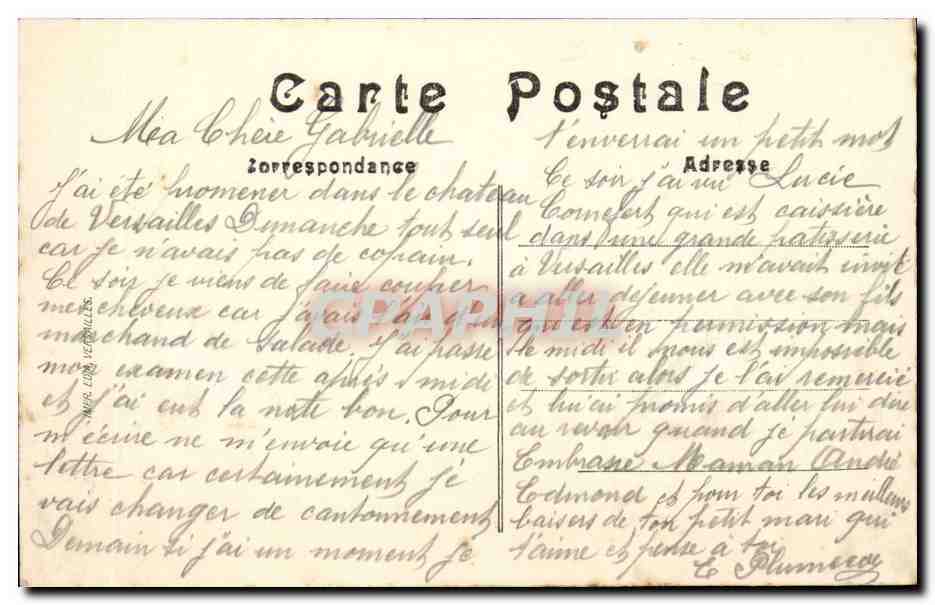 Carte Postale
Correspondance
Adresse
Ma Chère Gabrielle
J'ai été promener dans le chateau
de Versailles Dimanche tout seul
car je n'avais pas de copain.
Ce soir je viens de faire couper
mes cheveux car j'avais l'air d'un
marchand de salade. J'ai passé
mon examen cette après-midi
et j'ai eut la note bon. Pour
m'écrire ne m'envoie qu'une
lettre car certainement je
vais changer de cantonnement
Demain si j'ai un moment je
t'enverrai un petit mot
Ce soir j'ai vu Lucie
qui est caissière
dans une grande patisserie
à Versailles elle m'avait invité
a aller dejeuner avec son fils
qui est en permission mais
le midi il nous est impossible
de sortir alors je l'ai remercié
et lui ai promis d'aller lui dire
au revoir quand je partirai
Embrasse Maman André
Edmond et pour toi les meilleurs
baisers de ton petit mari qui
t'aime et pense à toi
IMP. EDIA VERSAILLES.
CPARHIL